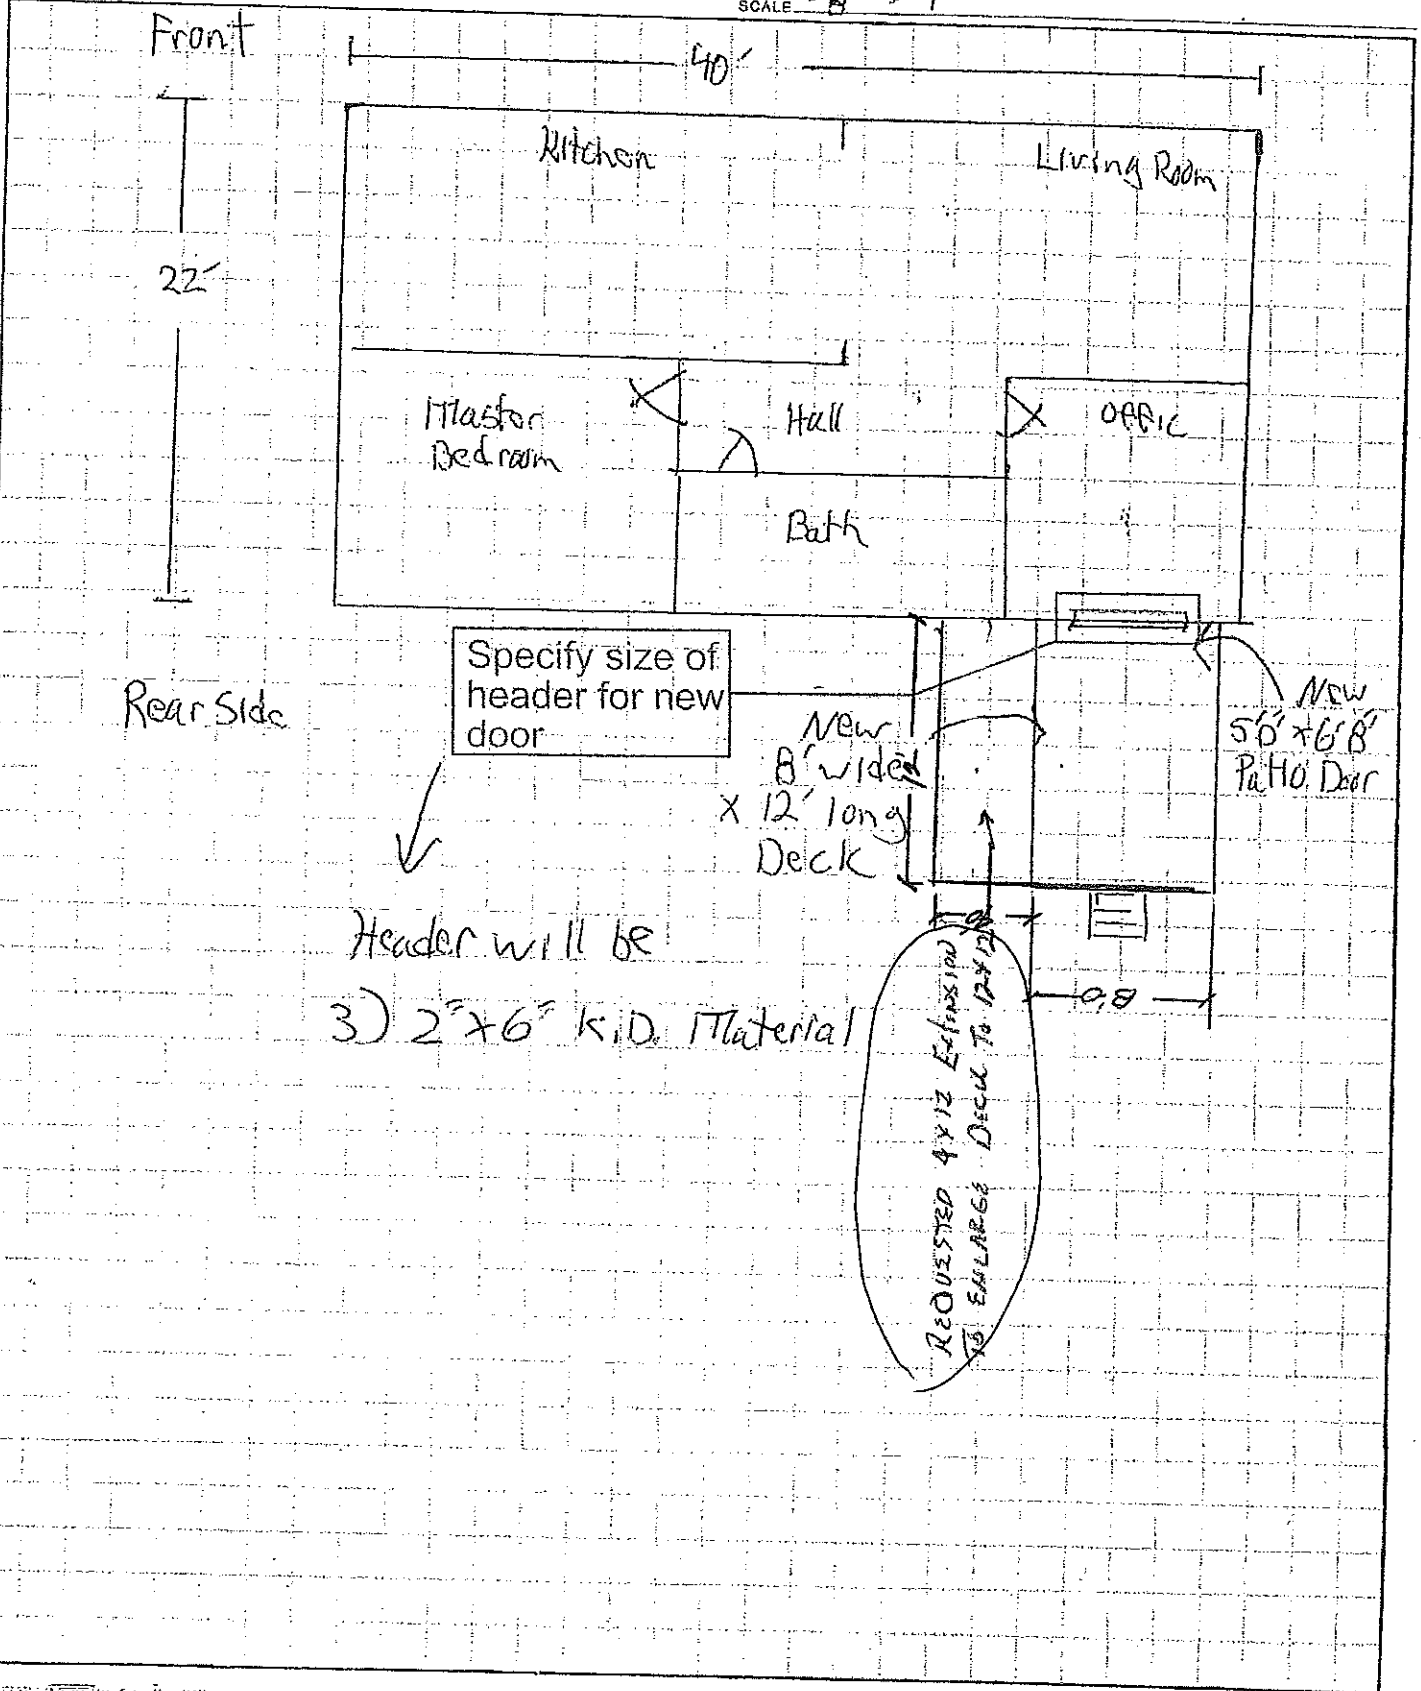 SCALE
Front
40'
Kitchen
Living Room
22'
Master
Bedroom
Hall
OFFIC
Bath
Specify size of
header for new
door
Rear Side
New
8' wide
X 12' long
Deck
12
New
5'0" x 6'8"
Patio Door
Header will be
3) 2"x6" K.D. Material
8'0
REQUESTED 4x12 Extension
To ENLARGE DECK To 12x12